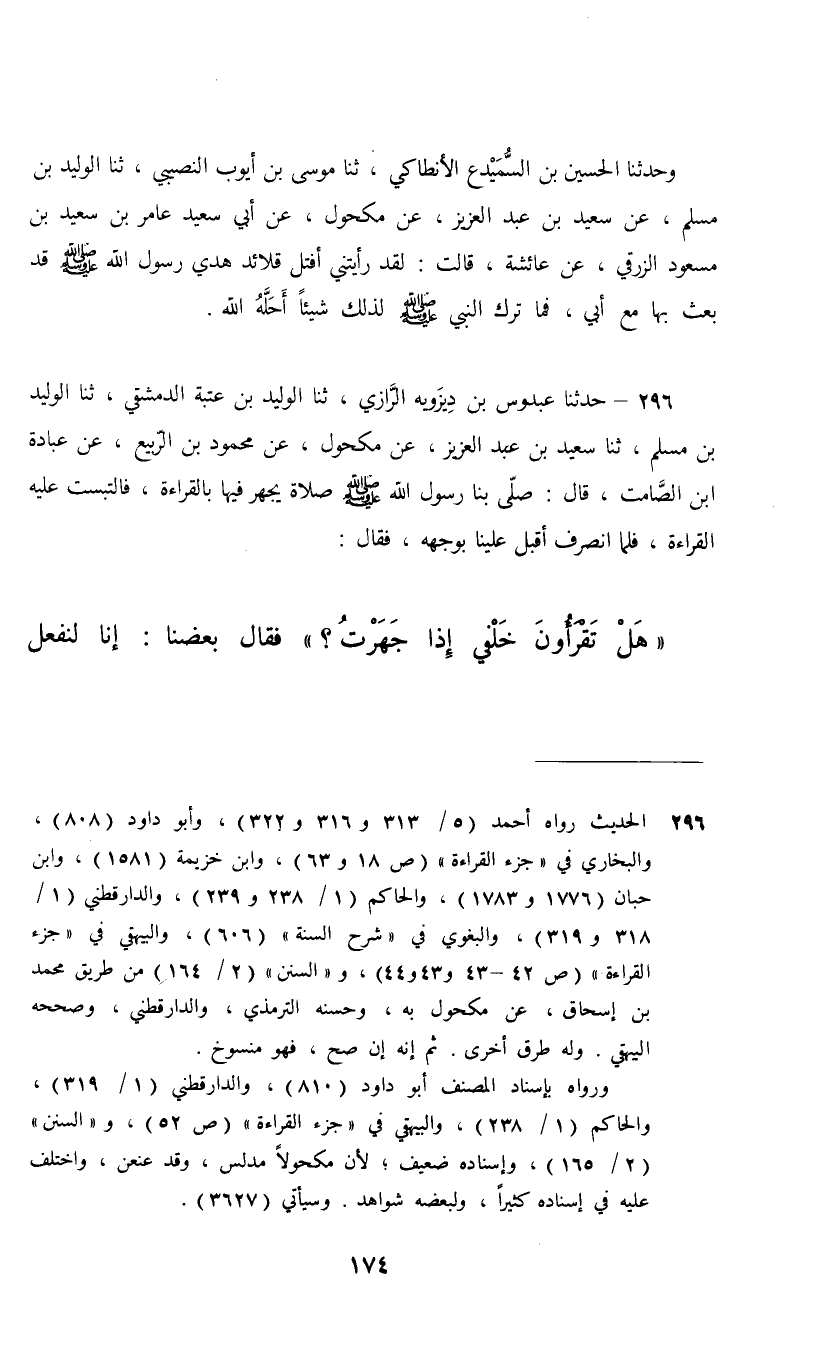 وحدثنا الحسين بن السُّمَيْدع الأنطاكي ، ثنا موسى بن أيوب النصيبي ، ثنا الوليد بن
مسلم ، عن سعيد بن عبد العزيز ، عن مكحول ، عن أبي سعيد عامر بن سعيد بن
مسعود الزرقي ، عن عائشة ، قالت : لقد رأيتني أفتل قلائد هدي رسول الله ﷺ قد
بعث بها مع أبي ، فما ترك النبي ﷺ لذلك شيئاً أَحَلَّهُ الله .
٢٩٦ – حدثنا عبدوس بن دِيزَويه الرَّازي ، ثنا الوليد بن عتبة الدمشقي ، ثنا الوليد
بن مسلم ، ثنا سعيد بن عبد العزيز ، عن مكحول ، عن محمود بن الرّبيع ، عن عبادة
ابن الصَّامت ، قال : صلّى بنا رسول الله ﷺ صلاة يجهر فيها بالقراءة ، فالتبست عليه
القراءة ، فلما انصرف أقبل علينا بوجهه ، فقال :
« هَلْ تَقْرَأُونَ خَلْفي إِذا جَهَرْتُ ؟ » فقال بعضنا : إنا لنفعل
٢٩٦ الحديث رواه أحمد (٥ / ٣١٣ و ٣١٦ و ٣٢٢) ، وأبو داود (٨٠٨) ،
والبخاري في « جزء القراءة » (ص ١٨ و ٦٣) ، وابن خزيمة (١٥٨١) ، وابن
حبان (١٧٧٦ و ١٧٨٣) ، والحاكم (١ / ٢٣٨ و ٢٣٩) ، والدارقطني (١ /
٣١٨ و ٣١٩) ، والبغوي في « شرح السنة » (٦٠٦) ، والبيهقي في « جزء
القراءة » (ص ٤٢ –٤٣ و٤٣و٤٤) ، و « السنن » (٢ / ١٦٤) من طريق محمد
بن إسحاق ، عن مكحول به ، وحسنه الترمذي ، والدارقطني ، وصححه
البيهقي . وله طرق أخرى . ثم إنه إن صح ، فهو منسوخ .
ورواه بإسناد المصنف أبو داود (٨١٠) ، والدارقطني (١ / ٣١٩) ،
والحاكم (١ / ٢٣٨) ، والبيهقي في « جزء القراءة » (ص ٥٢) ، و « السنن »
(٢ / ١٦٥) ، وإسناده ضعيف ؛ لأن مكحولاً مدلس ، وقد عنعن ، واختلف
عليه في إسناده كثيراً ، ولبعضه شواهد . وسيأتي (٣٦٢٧) .
١٧٤